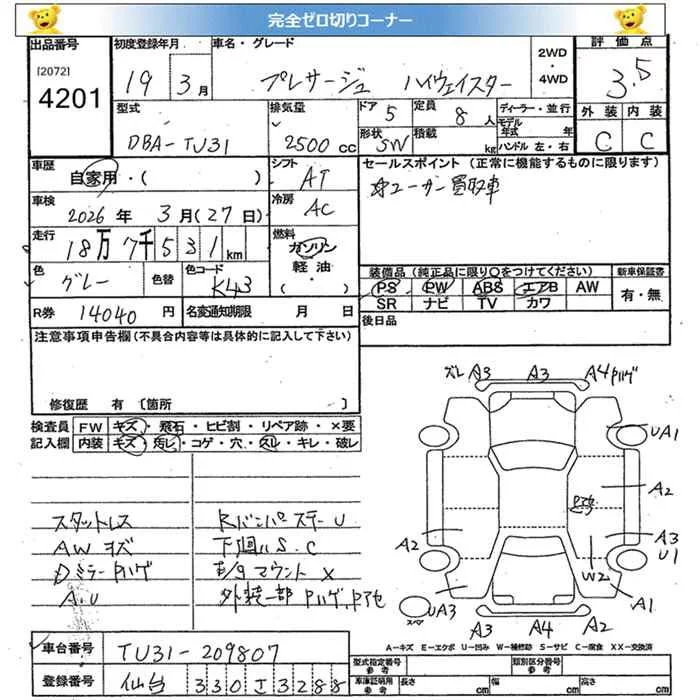 完全ゼロ切りコーナー
出品番号 [2072] 4201
初度登録年月 19 3月
車名・グレード プレサージュ ハイウェイスター
2WD・4WD
評価点 3.5
外装 内装
C C
型式 DBA-TU31
排気量 2500cc
ドア 5 定員 8人
形状 SW 積載 kg
ディーラー・並行
モデル年式 年
ハンドル 左・右
車歴 自家用・( )
シフト AT
セールスポイント (正常に機能するものに限ります)
ユーザー買取車
車検 2026年3月(27日)
冷房 AC
走行 18万7千531km
燃料 ガソリン 軽油 ・( )
色 グレー 色替 色コード K43
装備品(純正品に限り○をつけてください) 新車保証書
PS PW ABS エアB AW 有・無
SR ナビ TV カワ
R券 14040円 名変通知期限 月 日
後日品
注意事項申告欄(不具合内容等は具体的に記入して下さい)
修復歴 有 〔箇所 〕
検査員 FW キズ・飛石・ヒビ割・リペア跡・×要
記入欄 内装 キズ・汚レ・コゲ・穴・スレ・キレ・破レ
スタットレス
AWキズ
Dミラー Pハゲ
A.U
RバンパーステーU
下廻りS.C
E/gマウント×
外装一部 Pハゲ、Pアセ
ズレ A3 A3 A4 Pハゲ
UA1
A2
Pアセ
A2
A3
U1
W2
A1
スペア UA3
A3 A4 A2
A-キズ E-エクボ U-凹み W-補修跡 S-サビ C-腐食 XX-交換済
車台番号 TU31-209807
登録番号 仙台 330 エ 3288
型式指定番号 参考
類別区分番号 参考
車庫証明用 参考 長さ cm 幅 cm 高さ cm